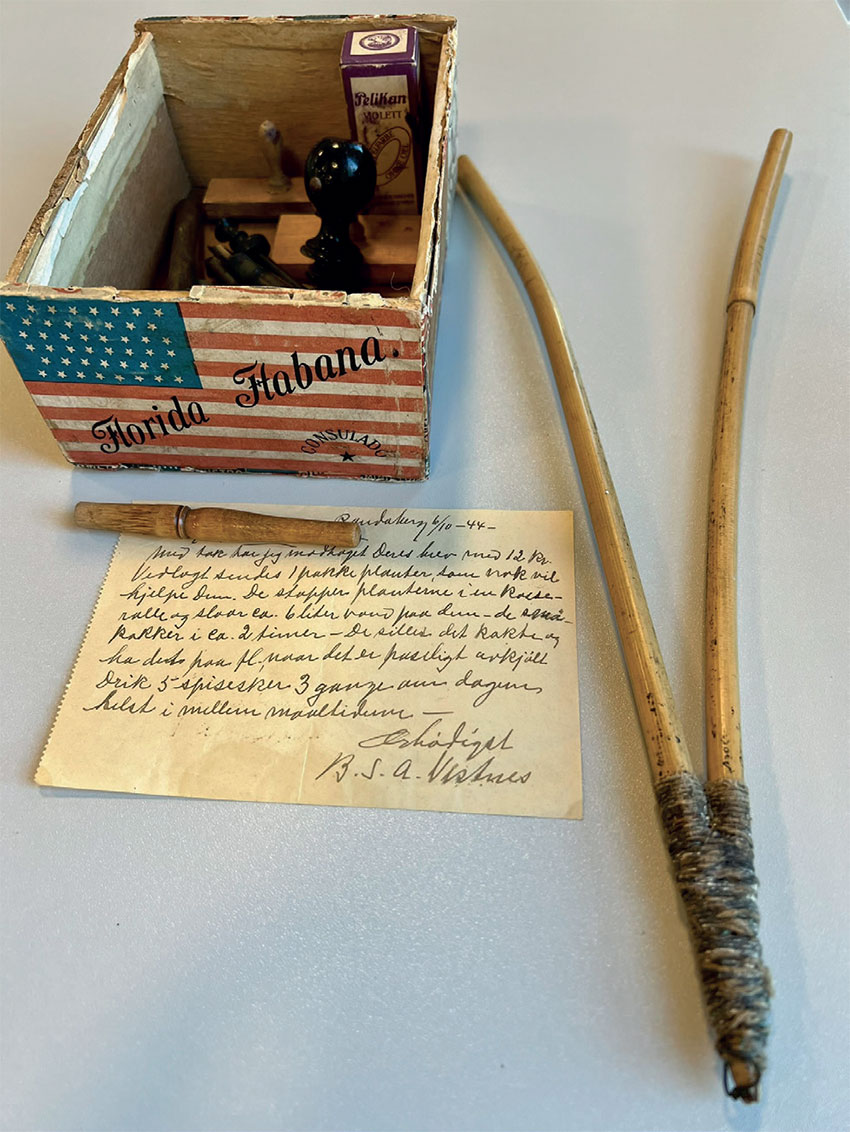 Pelikan
VIOLETT
OHNE OEL
Florida Habana.
CONSULADO
Randaberg 6/10 – 44 –
Med tak har jeg modtaget Deres brev med 12 kr.
Vedlagt sendes 1 pakke planter, som nok vil
hjelpe Dem. De stapper planterne i en
og slaar ca. 6 liter vand paa dem – de små-
kakker i ca. 2 timer – De silles det kakte og
ha dets paa fl, naar det er avkjølt
Drik 5 spisesker 3 gange om dagen,
helst i mellem maaltiderne –
Ærbødigst
B. S. A. Vestnes